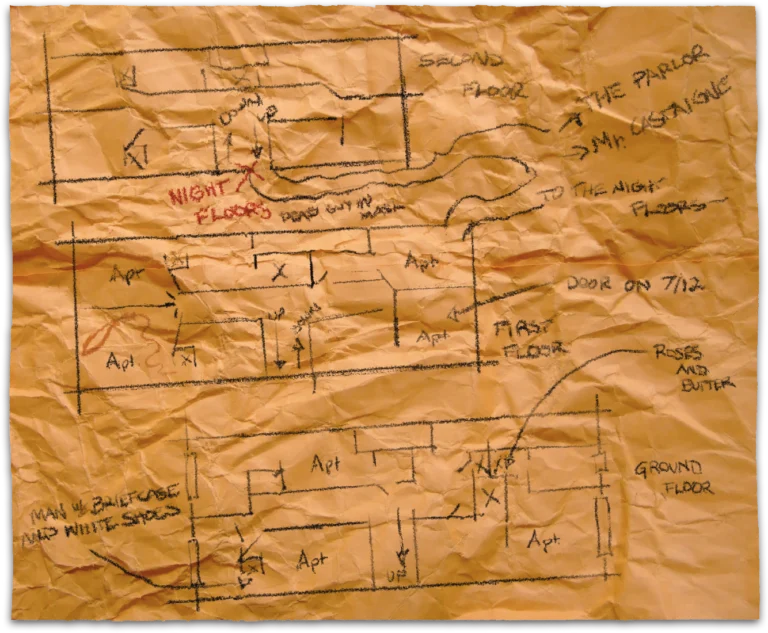 SECOND
FLOOR
THE PARLOR
Mr. CASTAIGNE
DOWN
UP
NIGHT
FLOORS
DEAD GUY IN
MASK
TO THE NIGHT
FLOORS
Apt
X
Apt
DOOR ON 7/12
UP
DOWN
Apt
X
Apt
FIRST
FLOOR
ROSES
AND
BUTTER
Apt
X
GROUND
FLOOR
MAN W/ BRIEFCASE
AND WHITE SHOES
Apt
UP
Apt